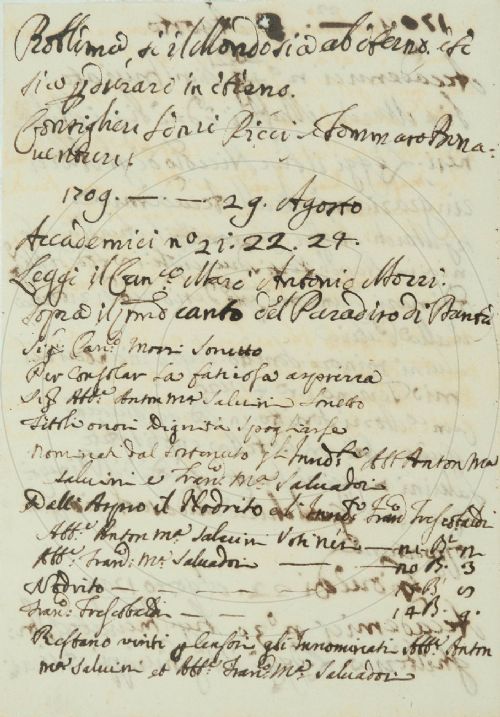 Problema, se il Mondo sia ab eterno, e se
sia p durare in eterno.
Consiglieri Senri Ricci e Tommaso Buna=
venturi
1709. — — 29. Agosto
Accademici nº 21. 22. 24.
Leggi il Canco Marc Antonio Mozzi.
sopra il pmo canto del Paradiso di Dante
Sigr Cano Mozzi Sonetto
Per consolar la faticosa asprezza
Sigr Abbe Anton Ma Salvini Sonetto
Titoli onori dignità spogliarse
Nominati dal Fortunato gli Abbe Anton Ma
Salvini e Frano Ma Salvadori
Dall: Aspro il Nodrito e Frano Frescobaldi
Abbe Anton Ma Salvini Voti neri — n
Abbe Frano Ma Salvadori — 3
Nodrito — 5
Frano Frescobaldi — 14 B. 9.
Restano vinti p Censori gli Innominati Abbe Anton
Ma Salvini et Abbe Frano Ma Salvadori